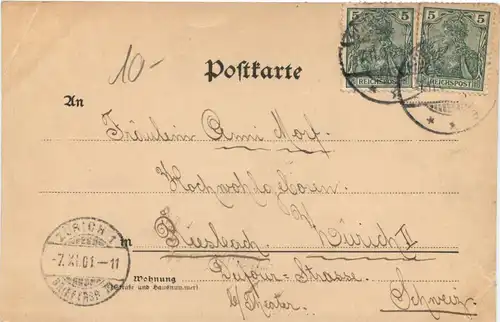 5 5
REICHSPOST REICHSPOST
10-
Postkarte
An
Fräulein Anni Morf.
Hochwohlgeboren
in Riesbach. Zürich II
Dufour-Strasse.
b/Theater.
Schweiz.
Wohnung
(Straße und Hausnummer)
ZÜRICH 1
-7.XI.01.-11
BRIEFTRÄG